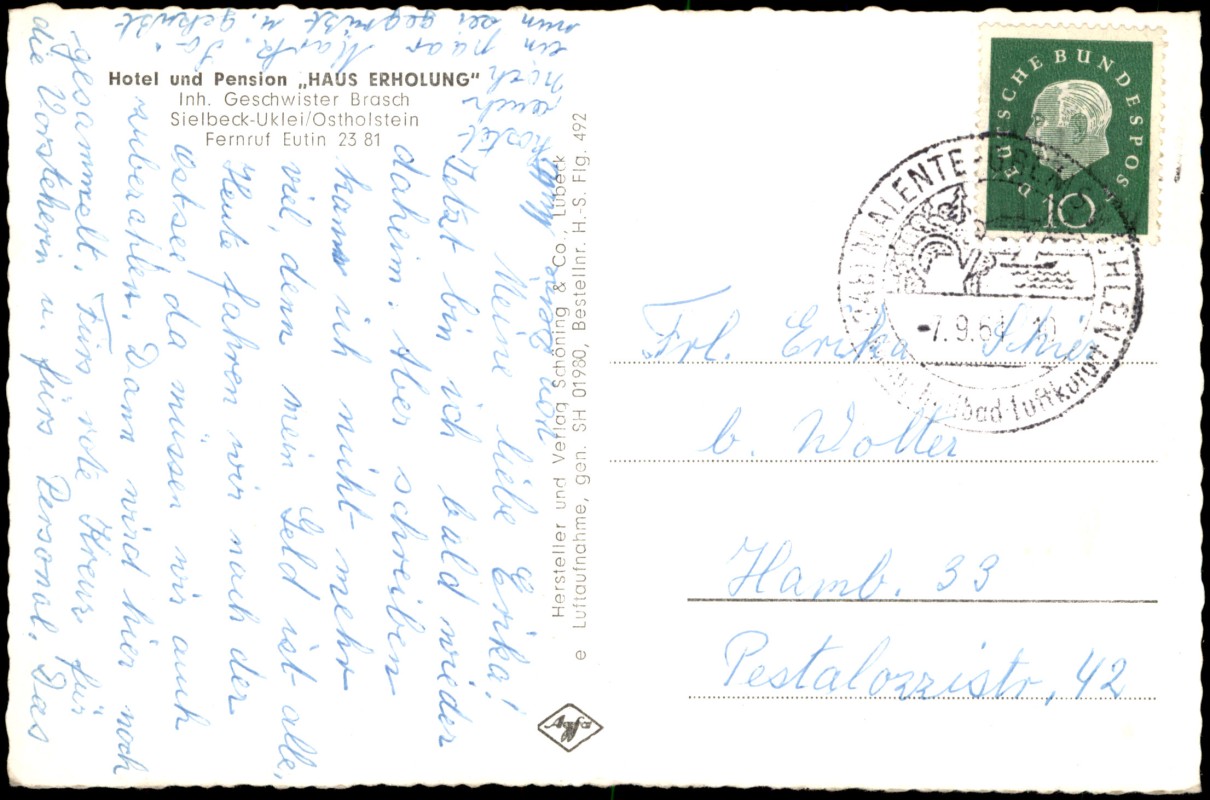 Hotel und Pension „HAUS ERHOLUNG"
Inh. Geschwister Brasch
Sielbeck-Uklei/Ostholstein
Fernruf Eutin 23 81
Meine liebe Erika!
Jetzt bin ich bald wieder
daheim. Aber schreiben
kann ich nicht mehr
viel, denn mein Geld ist alle,
Heute fahren wir nach der
Ostsee da müssen wir auch
zubezahlen. Dann wird hier noch
gesammelt. Fürs rote Kreuz für
die Vorsteherin u. fürs Personal. Das
kostet
auch
noch
ein paar Mark. So
nun sei gegrüßt u. geküßt
von Deiner
Hersteller und Verlag Schöning & Co., Lübeck
e Luftaufnahme, gen. SH 01980, Bestellnr. H.-S. Flg. 492
Agfa
DEUTSCHE BUNDESPOST
10
MALENTE-GREMSMÜHLEN
-7.9.64
Kneippheilbad-Luftkurort
Frl. Erika Schier
b. Wolter
Hamb. 33
Pestalozzistr, 42